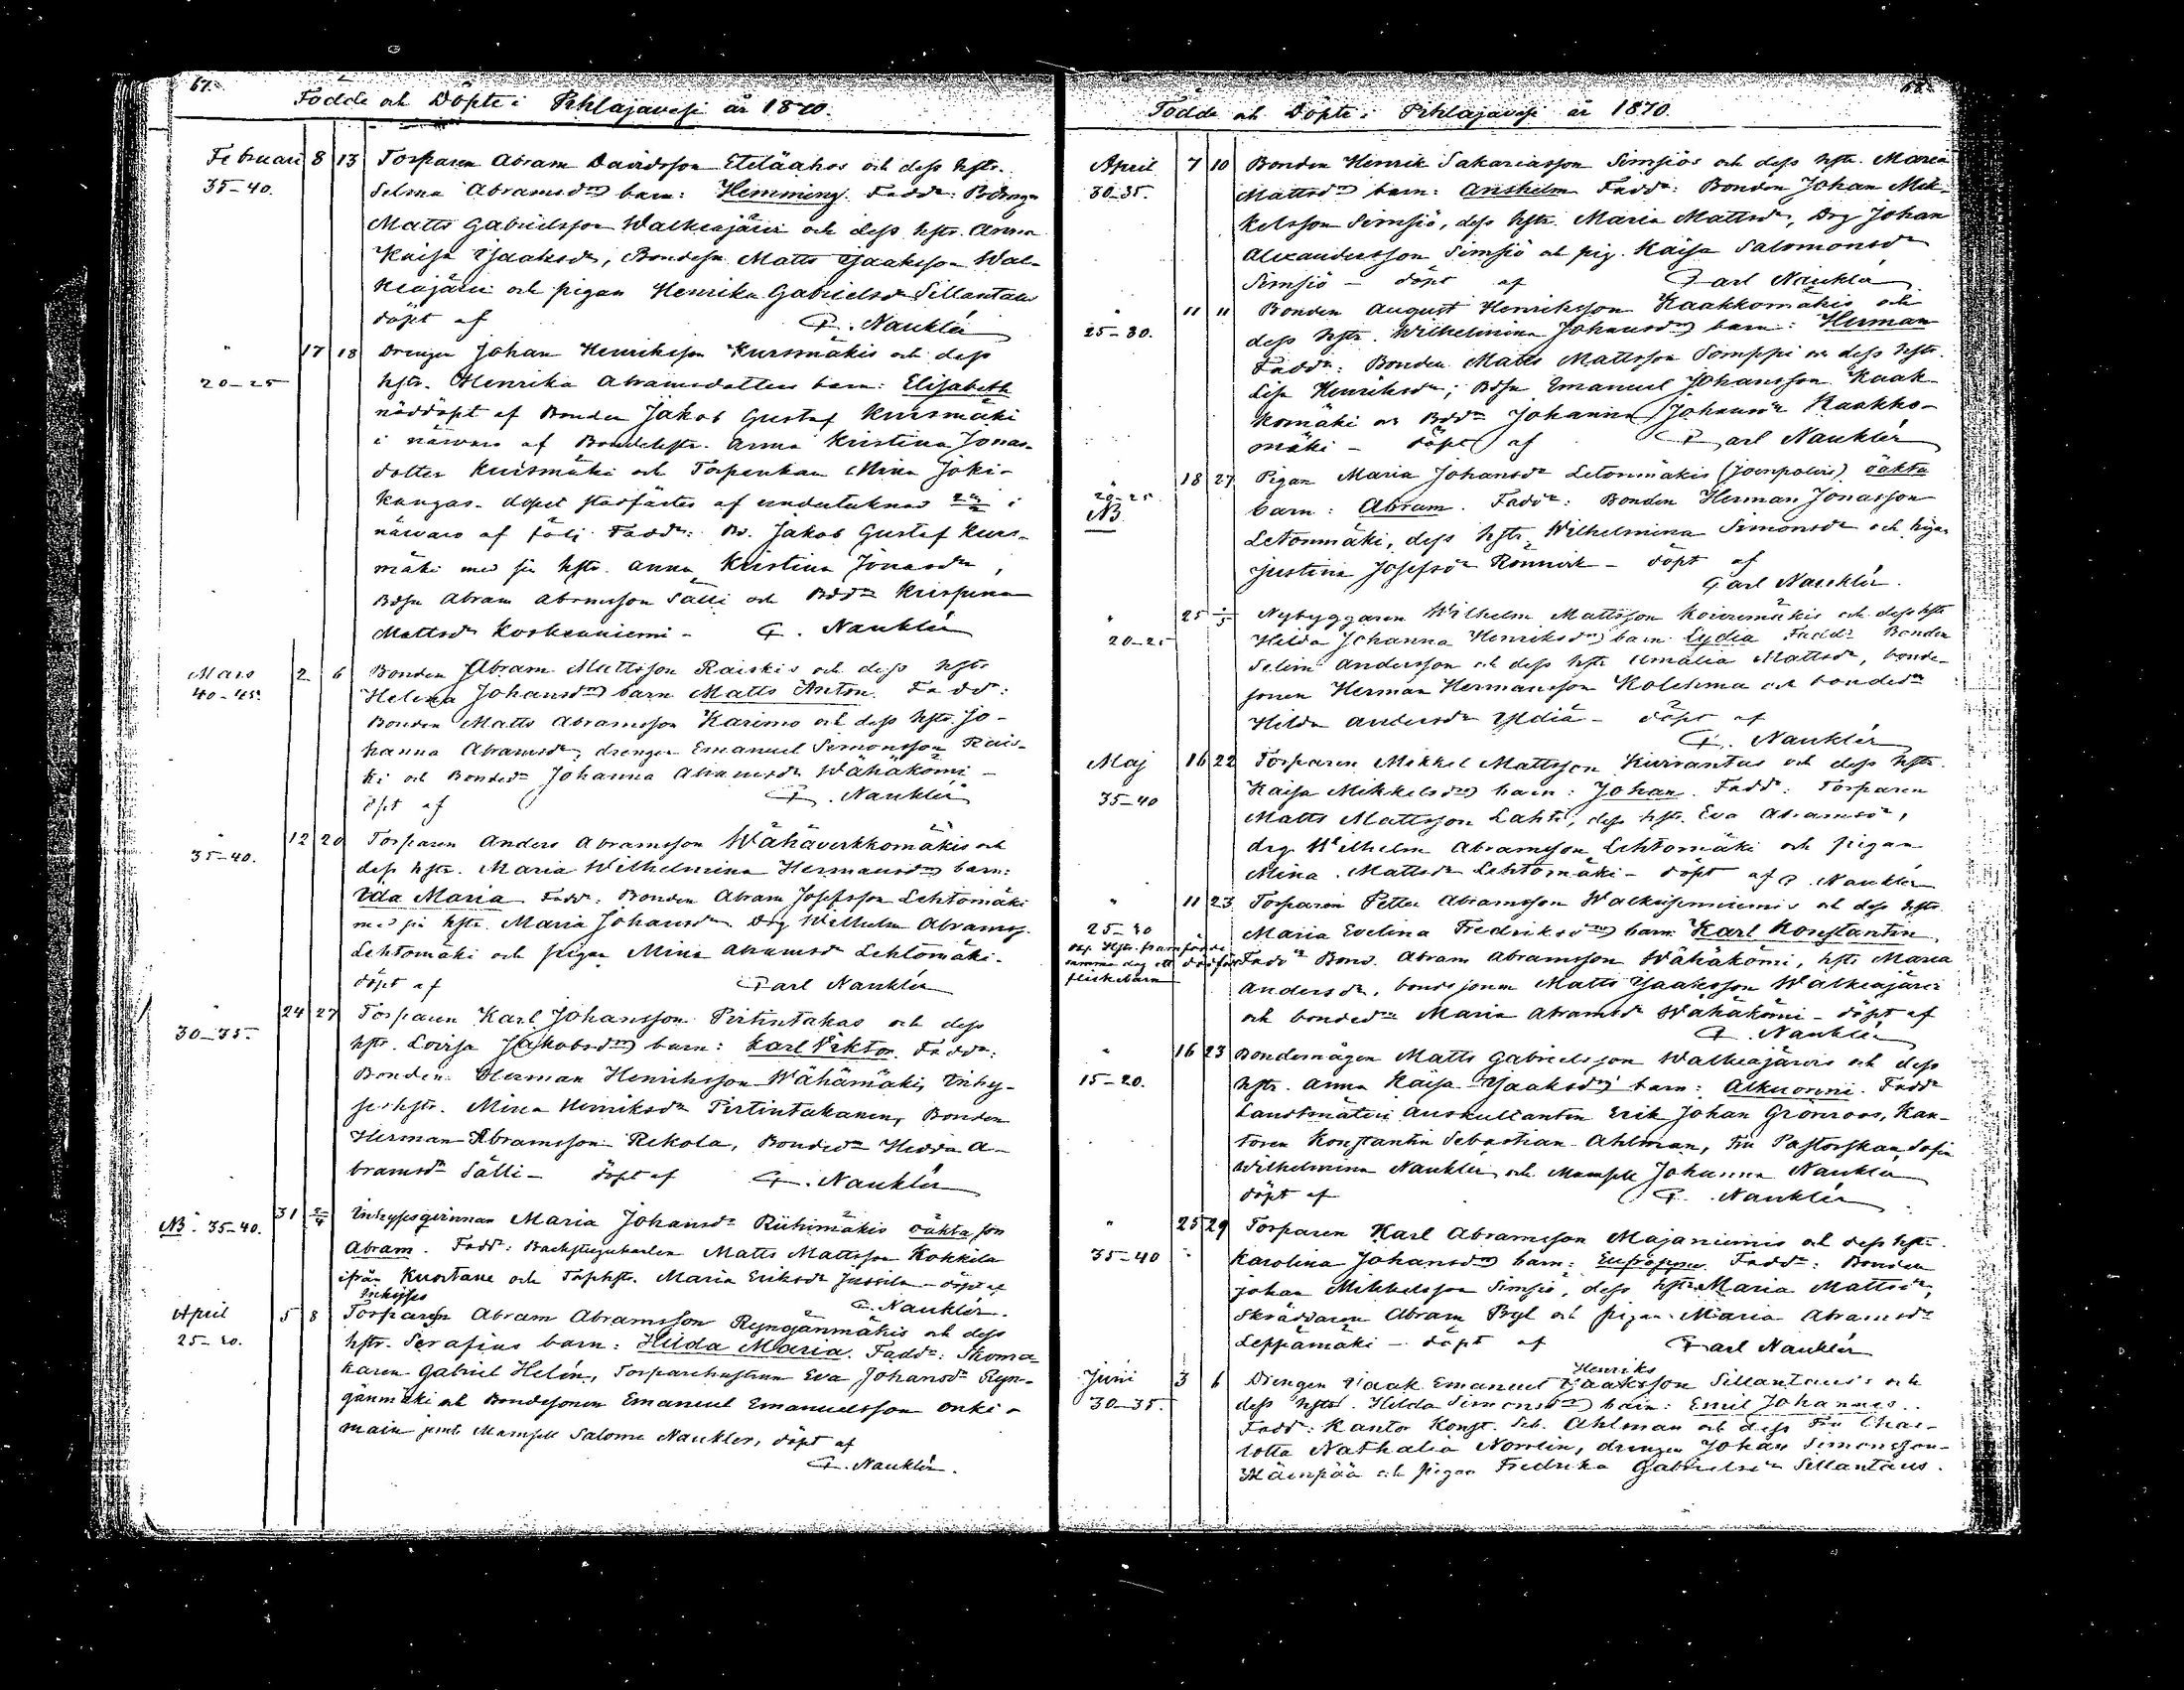 67.
Födde och Döpte i Pihlajavesi år 1870.
Februari 8 13 Torparen Abram Davidsson Eteläahos och dess hstr.
35-40. Selma Abramsdr barn: Hemming. Fadd:
Matts Gabrielsson Walkeajärvi och dess hstr. Anna
Kaisa Isaaksdr, Bondesn Matts Isaaksson Wal-
keajärvi och pigan Henrika Gabrielsdr Sillantaus
döpt af C. Nauklér
" 17 18 Drengen Johan Henriksson Kursmäkis och dess
20-25 hstr. Henrika Abramsdotters barn: Elisabeth
nöddöpt af Bonden Jakob Gustaf Kursmäki
i närvaro af Bondehstr. Anna Kristina Jonas-
dotter Kursmäki och Torpenkan Mina Joki-
kangas. Dopet stadfästes af undertecknad i
närvaro af följ. Fadd: Bd. Jakob Gustaf Kurs-
mäki med sin hstr. Anna Kristina Jonasdr,
Bdsn Abram Abramsson Sälli och Bddr Krispina
Mattsdr Koskenniemi - C. Nauklér
Mars 2 6 Bonden Abram Mattsson Raiskis och dess hstr
40-45. Helena Johansdr barn Matts Anton. Fadd:
Bonden Matts Abramsson Karimo och dess hstr. Jo-
hanna Abramsdr, drengen Emanuel Simonsson Rais-
ki och Bondedr Johanna Abramsdr Wähäkömi -
döpt af C. Nauklér
" 12 20 Torparen Anders Abramsson Wähäverkkomäkis och
35-40. dess hstr. Maria Wilhelmina Hermansdr barn:
Ida Maria Fadd: Bonden Abram Josefsson Lehtomäki
med sin hstr. Maria Johansdr. Drg Wilhelm Abramss.
Lehtomäki och pigan Mina Abramsdr Lehtomäki.
döpt af Carl Nauklér
" 24 27 Torparen Karl Johansson Pirtintakas och dess
30-35. hstr. Lovisa Jakobsdr barn: Karl Viktor. Fadd:
Bonden Herman Henriksson Wähämäki, Inhy-
seshstr. Mina Henriksdr Pirtintakanen, Bonden
Herman Abramsson Rekola, Bondedr Hedda A-
bramsdr Sälli - döpt af C. Nauklér
NB. 35-40. 31 2/4 Inhysesqvinnan Maria Johansdr Riihimäkis oäkta son
Abram. Fadd: Backstugukarlen Matts Mattsson Kokkila
ifrån Kuortane och Torphstr. Maria Eriksdr Jussila - döpt af
C. Nauklér.
Inhyses
April 5 8 Torparen Abram Abramsson Ryngänmäkis och dess
25-30. hstr. Serafias barn: Hilda Maria. Fadd: Skoma-
karen Gabriel Helén, Torparehustrun Eva Johansdr Ryn-
gänmäki och Bondesonen Emanuel Emanuelsson Onki-
main jemte Mamsell Salome Nauklér, döpt af
C. Nauklér.
68.
Födde och Döpte i Pihlajavesi år 1870.
April 7 10 Bonden Henrik Sakariasson Simsiös och dess hstr. Maria
30-35. Mattsdr barn: Anshelm Fadd: Bonden Johan Mik-
kelsson Simsiö, dess hstr. Maria Mattsdr, Drg Johan
Alexandersson Simsiö och pig. Kaisa Salomonsdr
Simsiö - döpt af Carl Nauklér
" 11 11 Bonden August Henriksson Kaakkomäkis och
25-30. dess hstr. Wilhelmina Johansdr barn: Herman
Fadd: Bonden Matts Mattsson Somppi och dess hstr.
Lisa Henriksdr; Bdsn Emanuel Johansson Kaak-
komäki och Bddr Johanna Johansdr Kaakko-
mäki - döpt af Carl Nauklér
" 18 27 Pigan Maria Johansdr Letonmäkis oäkta
20-25 barn: Abram. Fadd: Bonden Herman Jonasson
NB Letonmäki, dess hstr. Wilhelmina Simonsdr och pigan
Justina Josefsdr Rönnik - döpt af
Carl Nauklér.
" 25 1/5 Nybyggaren Wilhelm Mattsson Koivumäkis och dess hstr
20-25 Hilda Johanna Henriksdr barn Lydia Fadd: Bonden
Selim Andersson och dess hstr Amalia Mattsdr, bonde-
sonen Herman Hermansson Kolehma och bondedr
Hilda Andersdr Yldiä - döpt af
C. Nauklér
Maj 16 22 Torparen Mikkel Mattsson Kuvantus och dess hstr.
35-40 Kaisa Mikkelsdr barn: Johan. Fadd: Torparen
Matts Mattsson Lahti, dess hstr. Eva Abramsdr,
drg. Wilhelm Abramsson Lehtomäki och pigan
Mina Mattsdr Lehtomäki - döpt af C. Nauklér
" 11 23 Torparen Petter Abramsson Walkeisenniemis och dess hstr.
25-30 Maria Evelina Fredriksdr barn: Karl Konstantin.
Obs. Hstr. framfödde
samma dag ett dödfödt
flickebarn
Fadd: Bond. Abram Abramsson Wähäkömi, hstr Maria
Andersdr, bondesonen Matts Isaaksson Walkeajärvi
och bondedr Maria Abramsdr Wähäkömi - döpt af
C. Nauklér
" 16 23 Bondemågen Matts Gabrielsson Walkeajärvis och dess
15-20. hstr. Anna Kaisa Isaaksdr barn: Alkuonni. Fadd:
Landtmäteri Auskultanten Erik Johan Grönroos, Kan-
toren Konstantin Sebastian Ahlman, Fru Pastorskan Sofia
Wilhelmina Nauklér och Mamsell Johanna Nauklér
döpt af C. Nauklér
" 25 29 Torparen Karl Abramsson Majaniemis och dess hstr.
35-40 Karolina Johansdr barn: Fadd: Bonden
Johan Mikkelsson Simsiö, dess hstr Maria Mattsdr,
Skräddaren Abram Pyl och pigan Maria Abramsdr
Leppämäki - döpt af Carl Nauklér
Henriks
Juni 3 6 Drengen Isaak Emanuel Isaaksson Sillantaus's och
30-35. dess hstr. Hilda Simonsdr barn: Emil Johannes.
Fadd: Kantor Konst. Seb. Ahlman och dess Fru Char-
lotta Nathalia Norrlin, drengen Johan Simonsson
Mäenpää och pigan Fredrika Gabrielsdr Sillantaus.